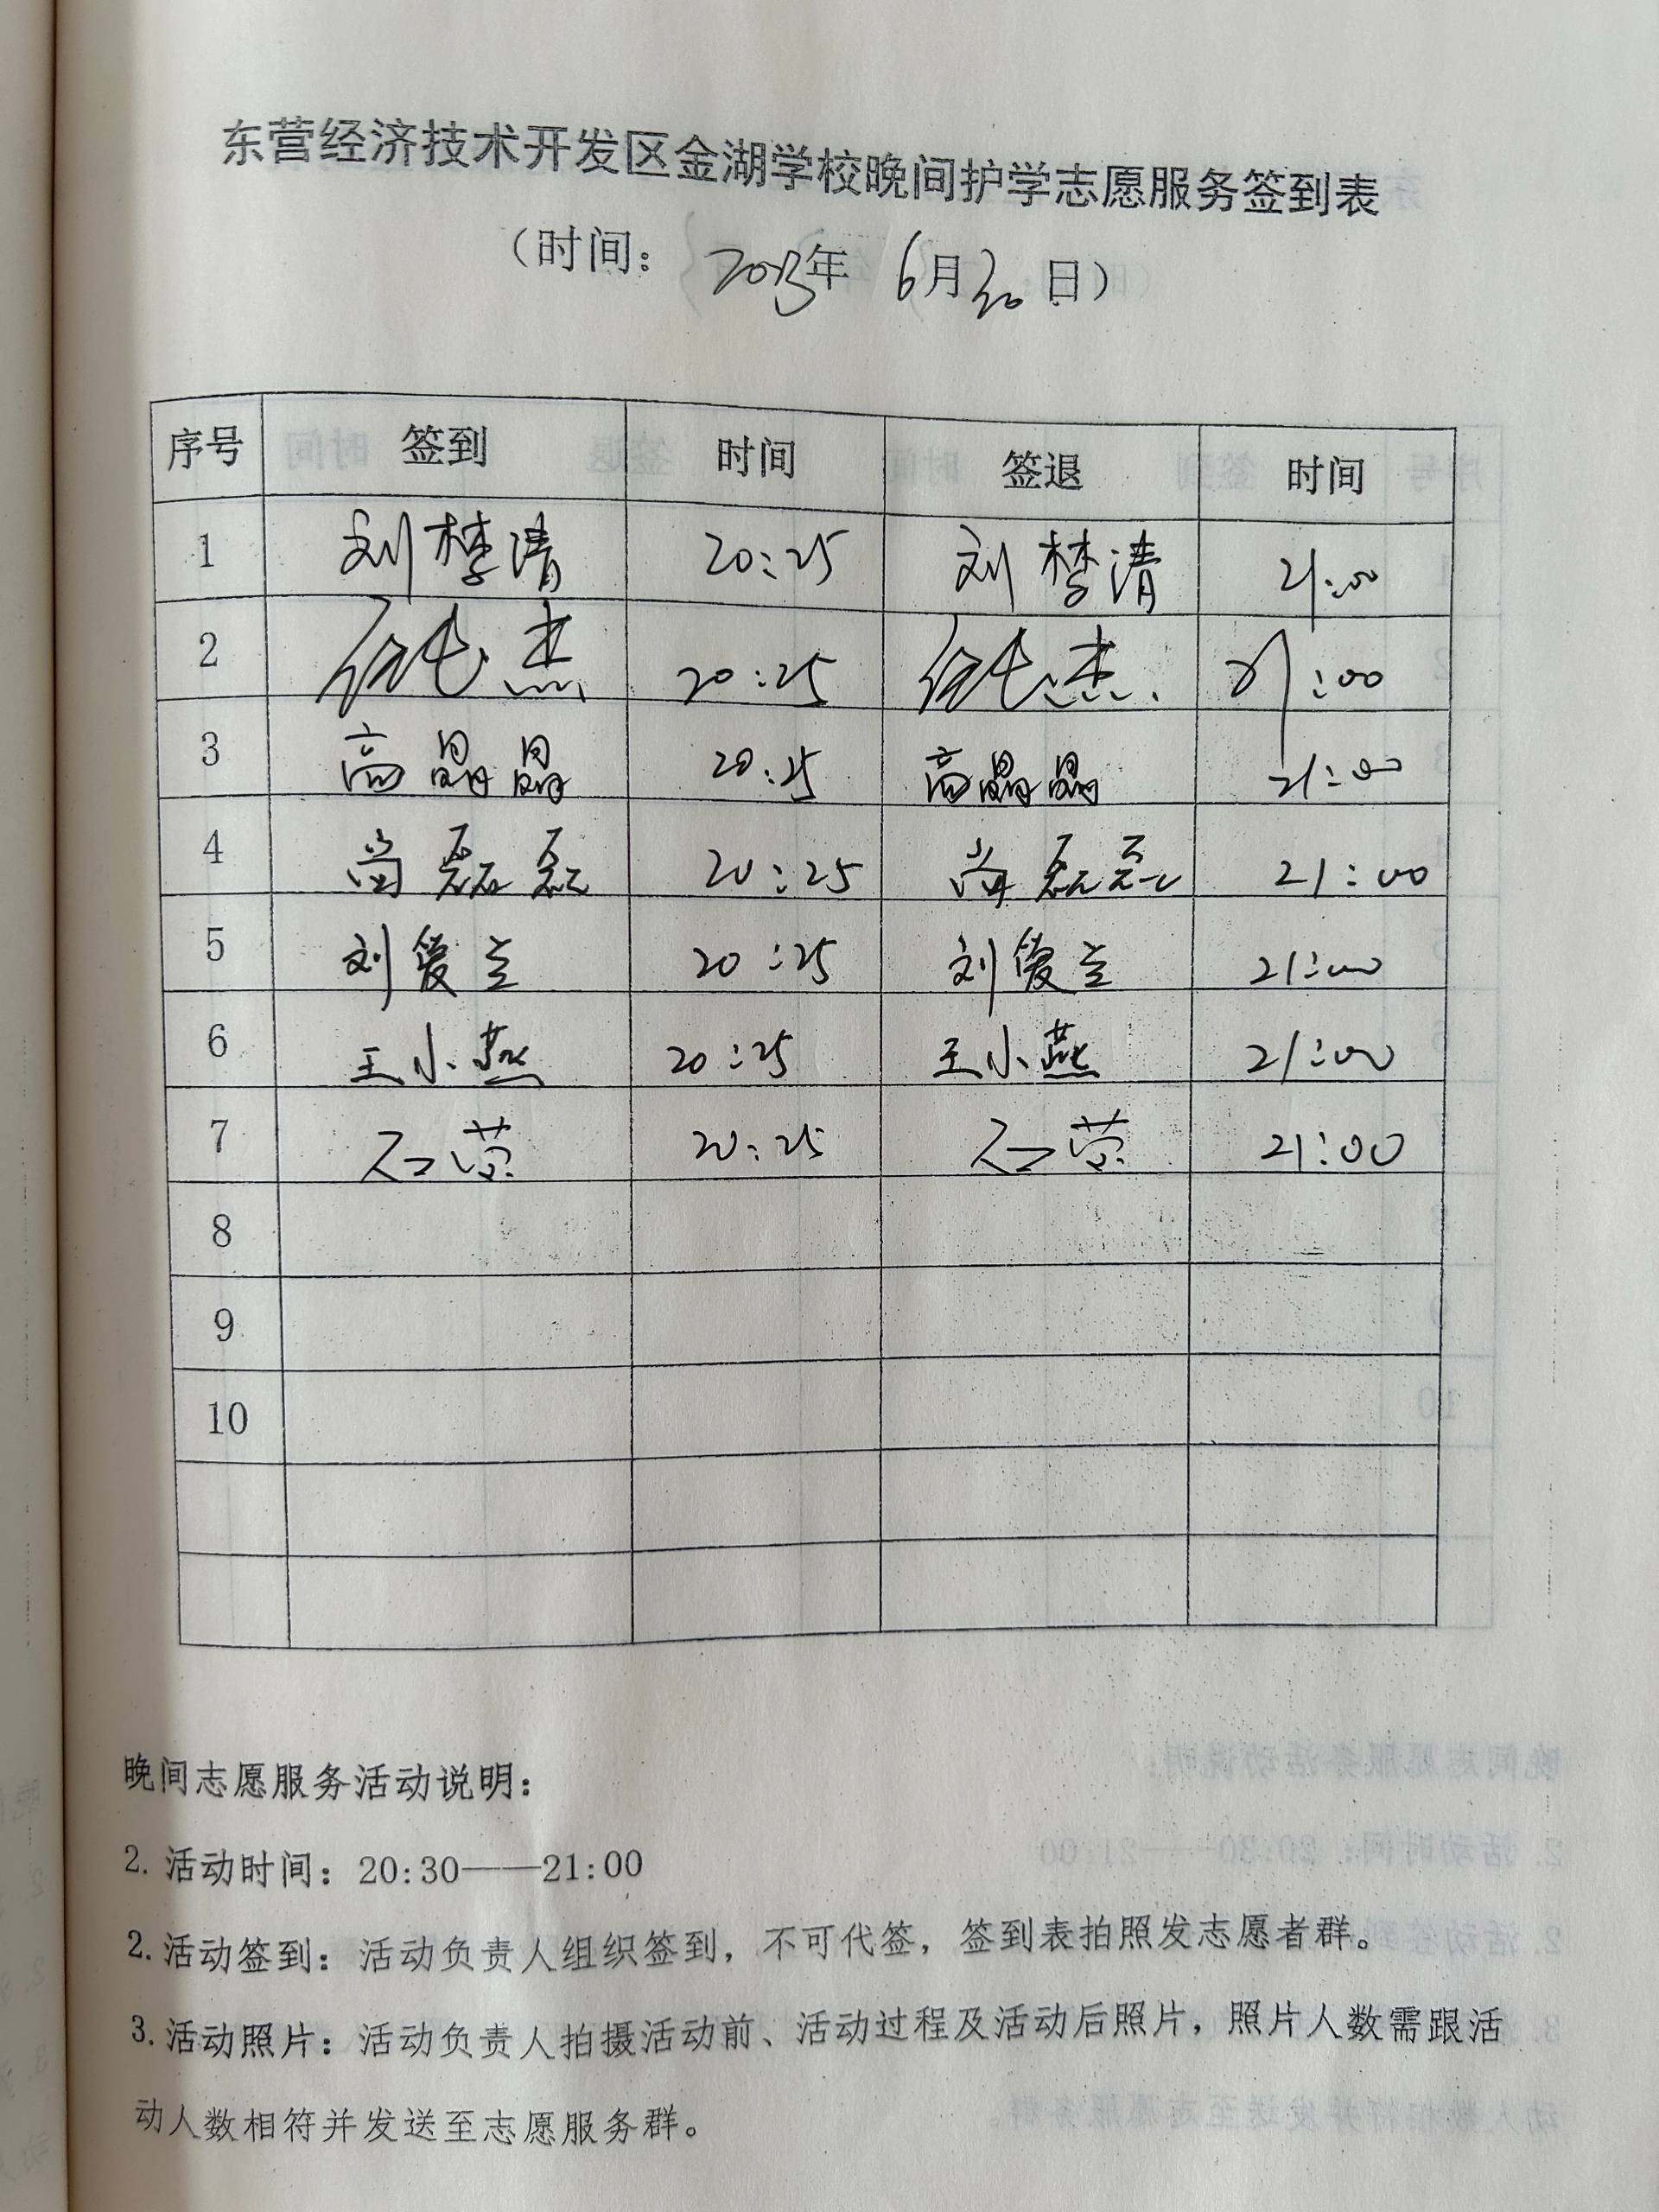 东营经济技术开发区金湖学校晚间护学志愿服务签到表
（时间： 2023年 6月20日）
序号 签到 时间 签退 时间
1 刘梦清 20:25 刘梦清 21:00
2 杰 20:25 杰 21:00
3 高晶晶 20:25 高晶晶 21:00
4 尚磊磊 20:25 尚磊磊 21:00
5 刘爱 20:25 刘爱 21:00
6 王小燕 20:25 王小燕 21:00
7 石营 20:25 石营 21:00
8
9
10
晚间志愿服务活动说明：
2. 活动时间：20:30——21:00
2. 活动签到：活动负责人组织签到，不可代签，签到表拍照发志愿者群。
3. 活动照片：活动负责人拍摄活动前、活动过程及活动后照片，照片人数需跟活
动人数相符并发送至志愿服务群。